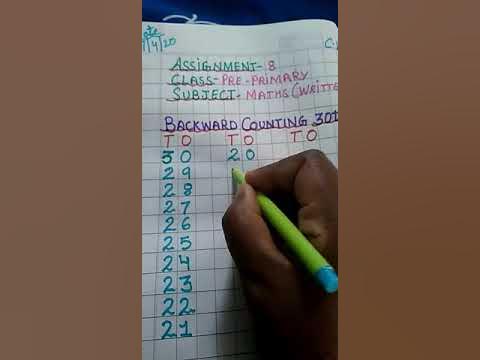 ate
4/20
C.
ASSIGNMENT- 8
CLASS- PRE-PRIMARY
SUBJECT- MATHS (WRITTE
BACKWARD COUNTING 30
T O T O T O
30 20
29
28
27
26
25
24
23
22
21